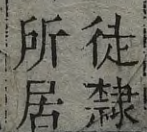 徒隸
所居